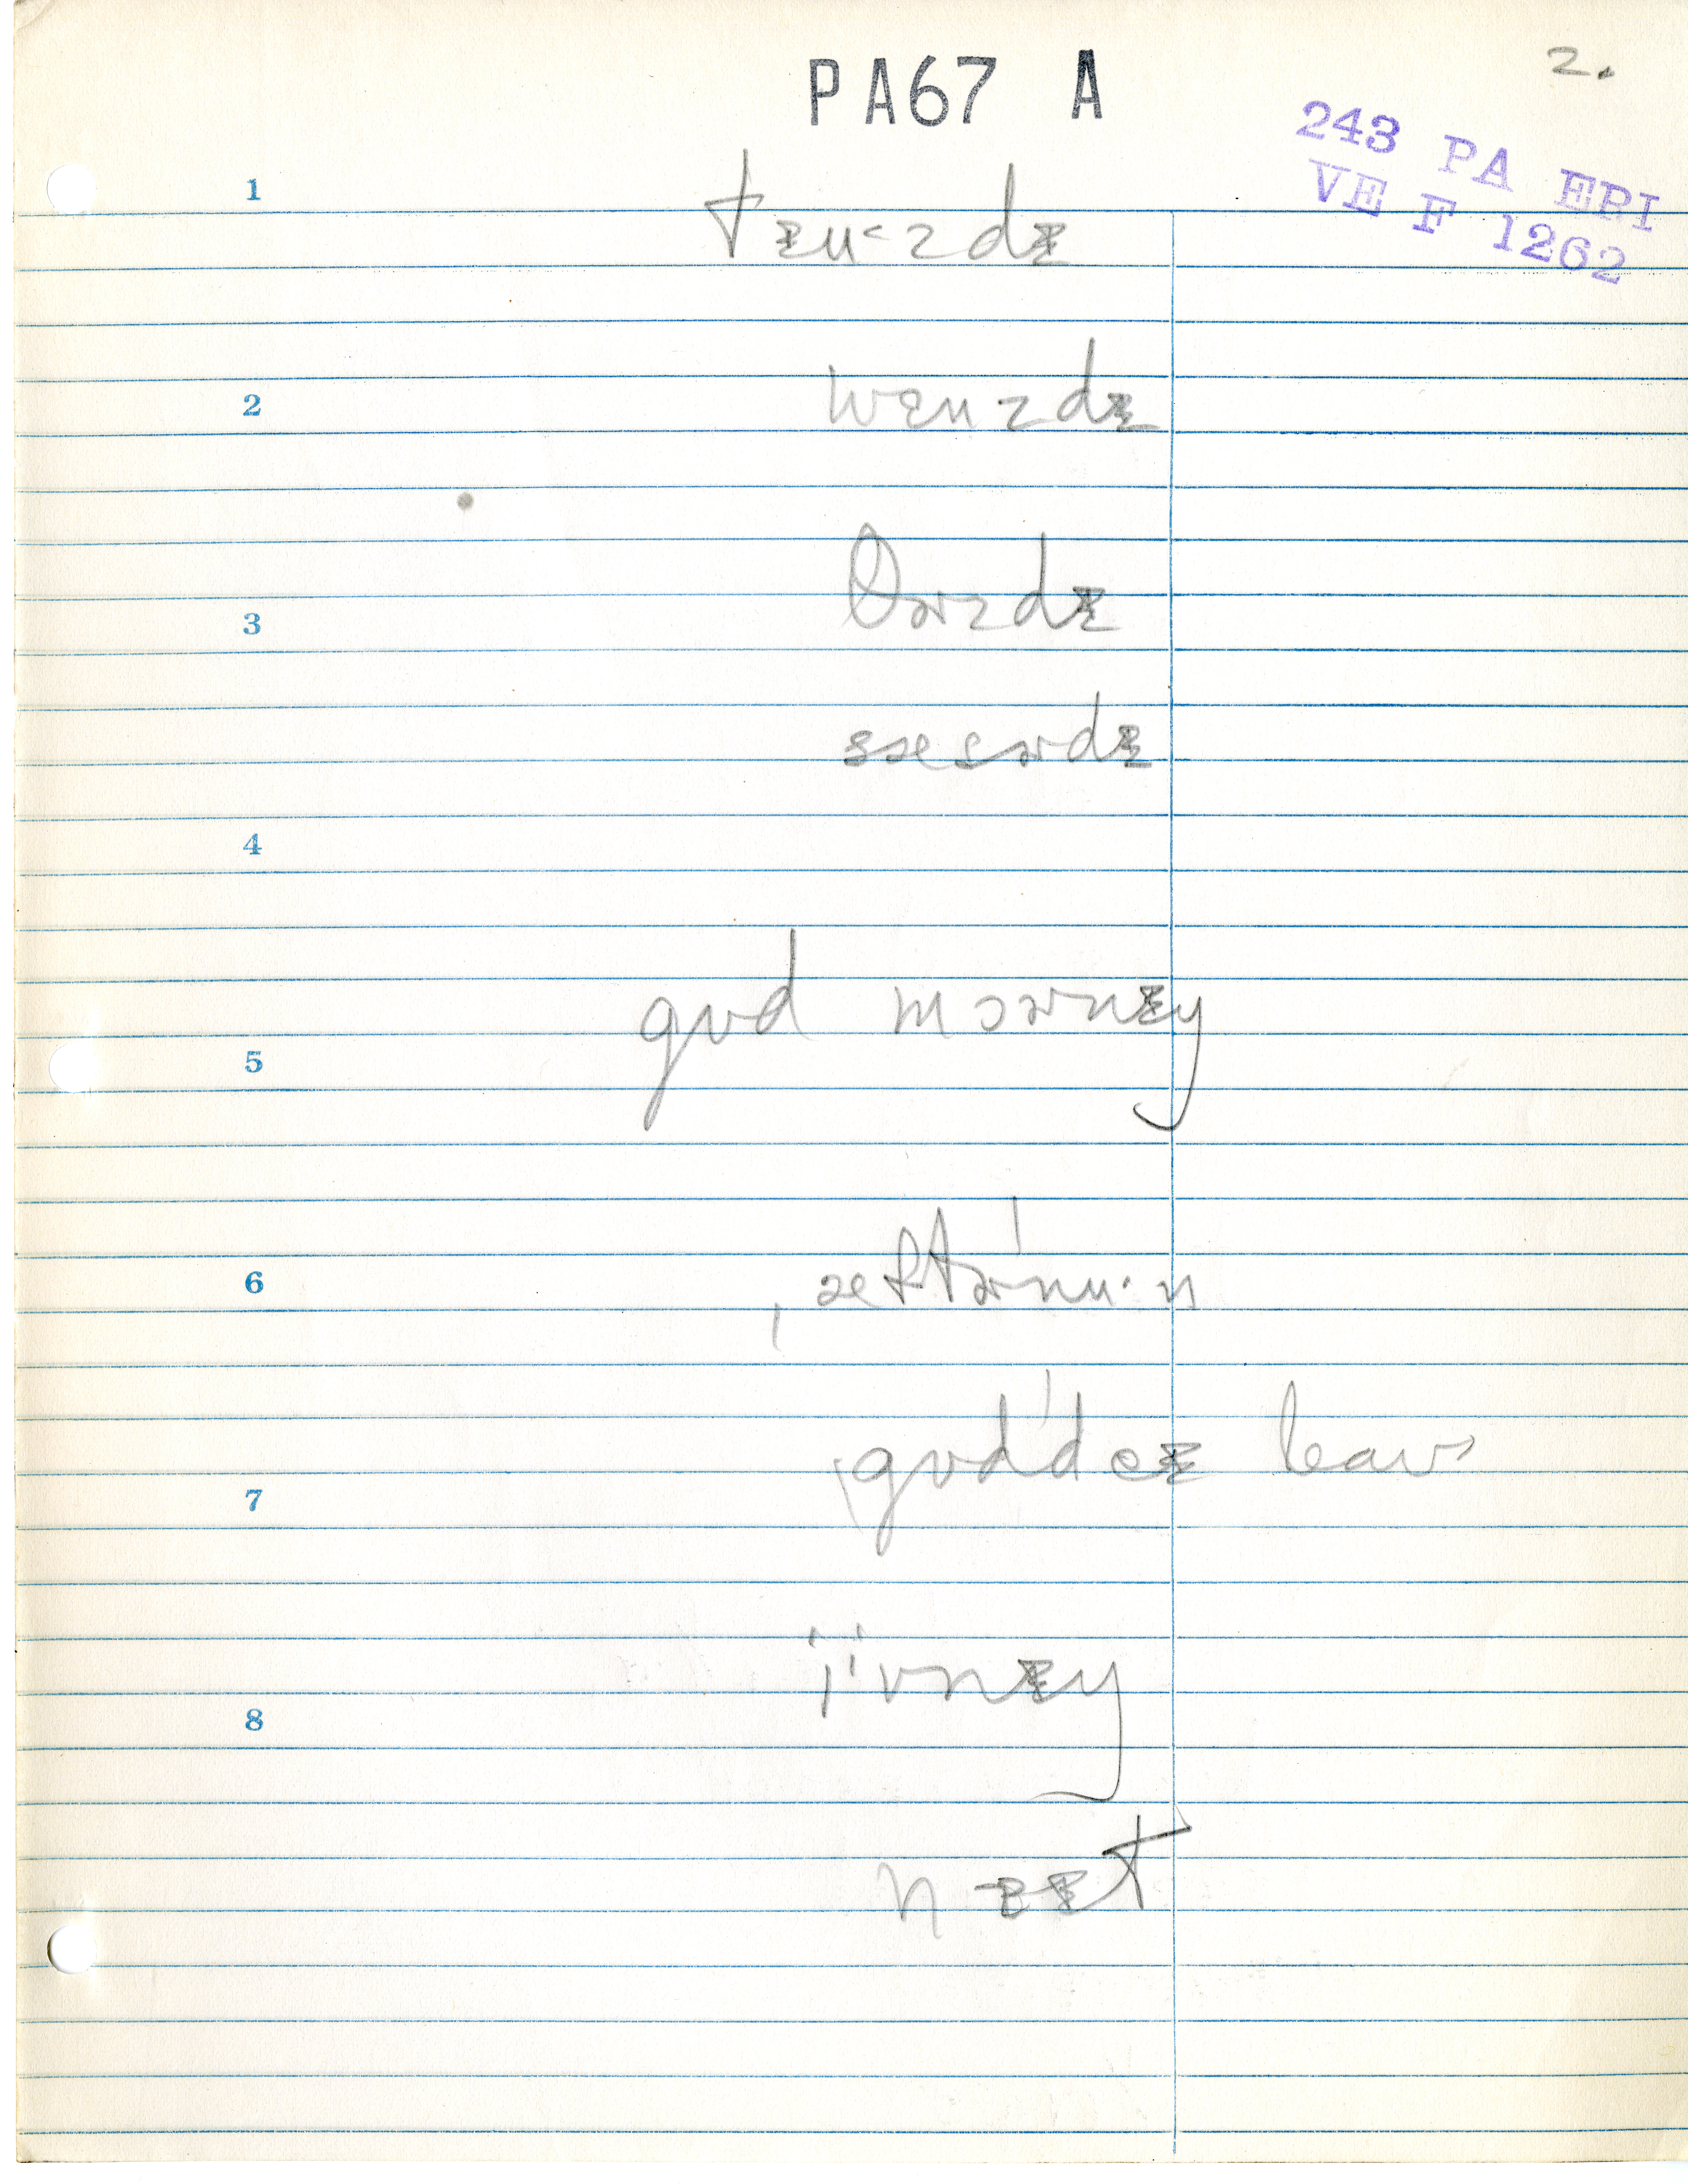 PA67 A
2.
243 PA ERI
VE F 1262
1
tɪu<zdɪ
2
wɛnzdɪ
θɚzdɪ
3
sæsɚdɪ
4
gʊd mɔɚnɪŋ
5
ˌæftɚˈnu·n
6
ˌgʊdˈdeɪ baʊ
7
iˈvnɪŋ
8
nɐɪt